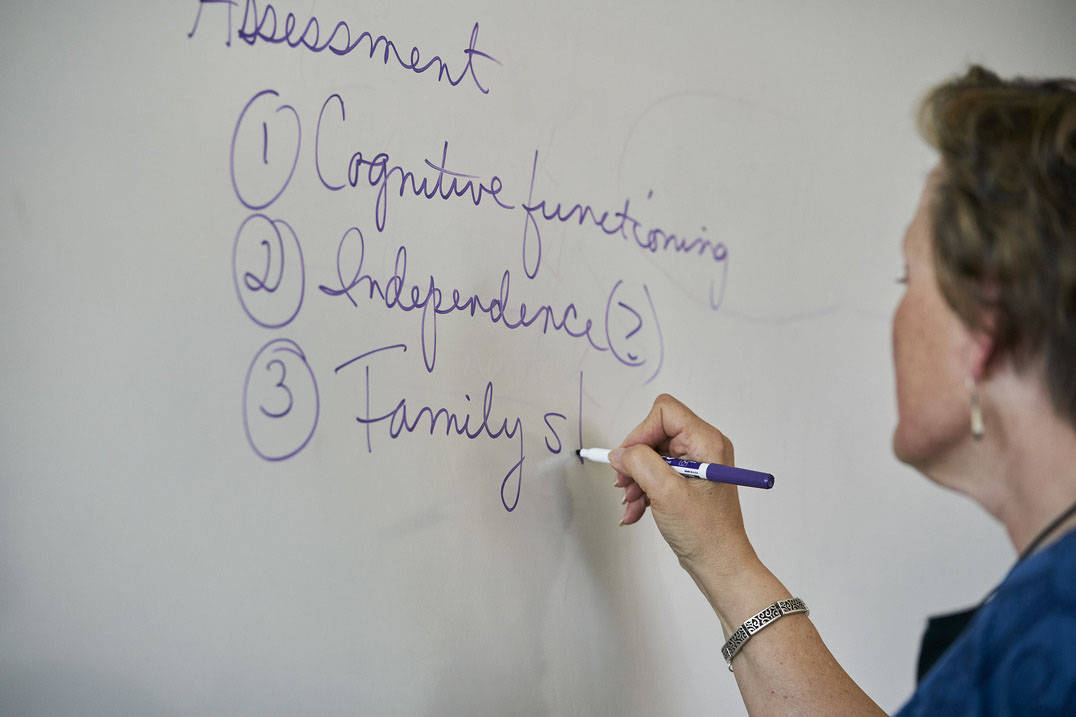 Assessment
1 Cognitive functioning
2 Independence (?)
3 Family s